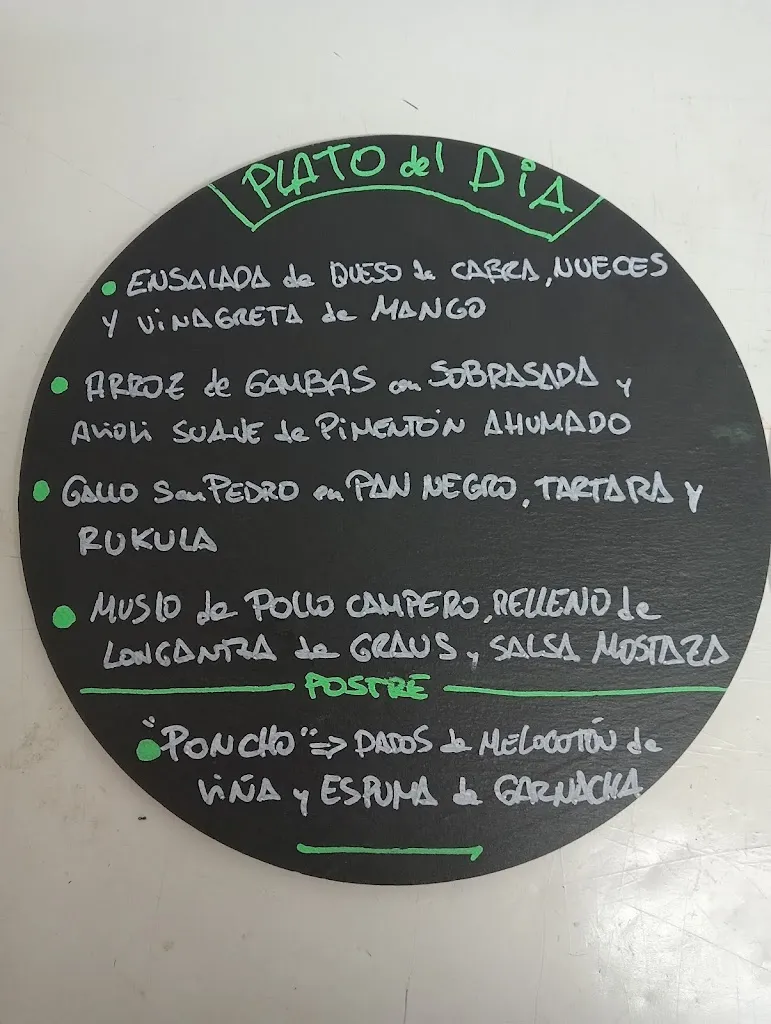 PLATO del DiA
ENSALADA de QUESO de CABRA, NUECES
y ViNAGRETA de MANGO
ARROZ de GAMBAS con SOBRASADA y
Alioli SUAVE de PiMENTÓN AHUMADO
GALLO San PEDRO en PAN NEGRO, TARTARA y
RUKULA
MUSLO de POLLO CAMPERO, RELLENO de
LONGANIZA de GRAUS y SALSA MOSTAZA
POSTRE
"PONCHO" => DADOS de MELOCOTÓN de
ViÑA y ESPUMA de GARNACHA